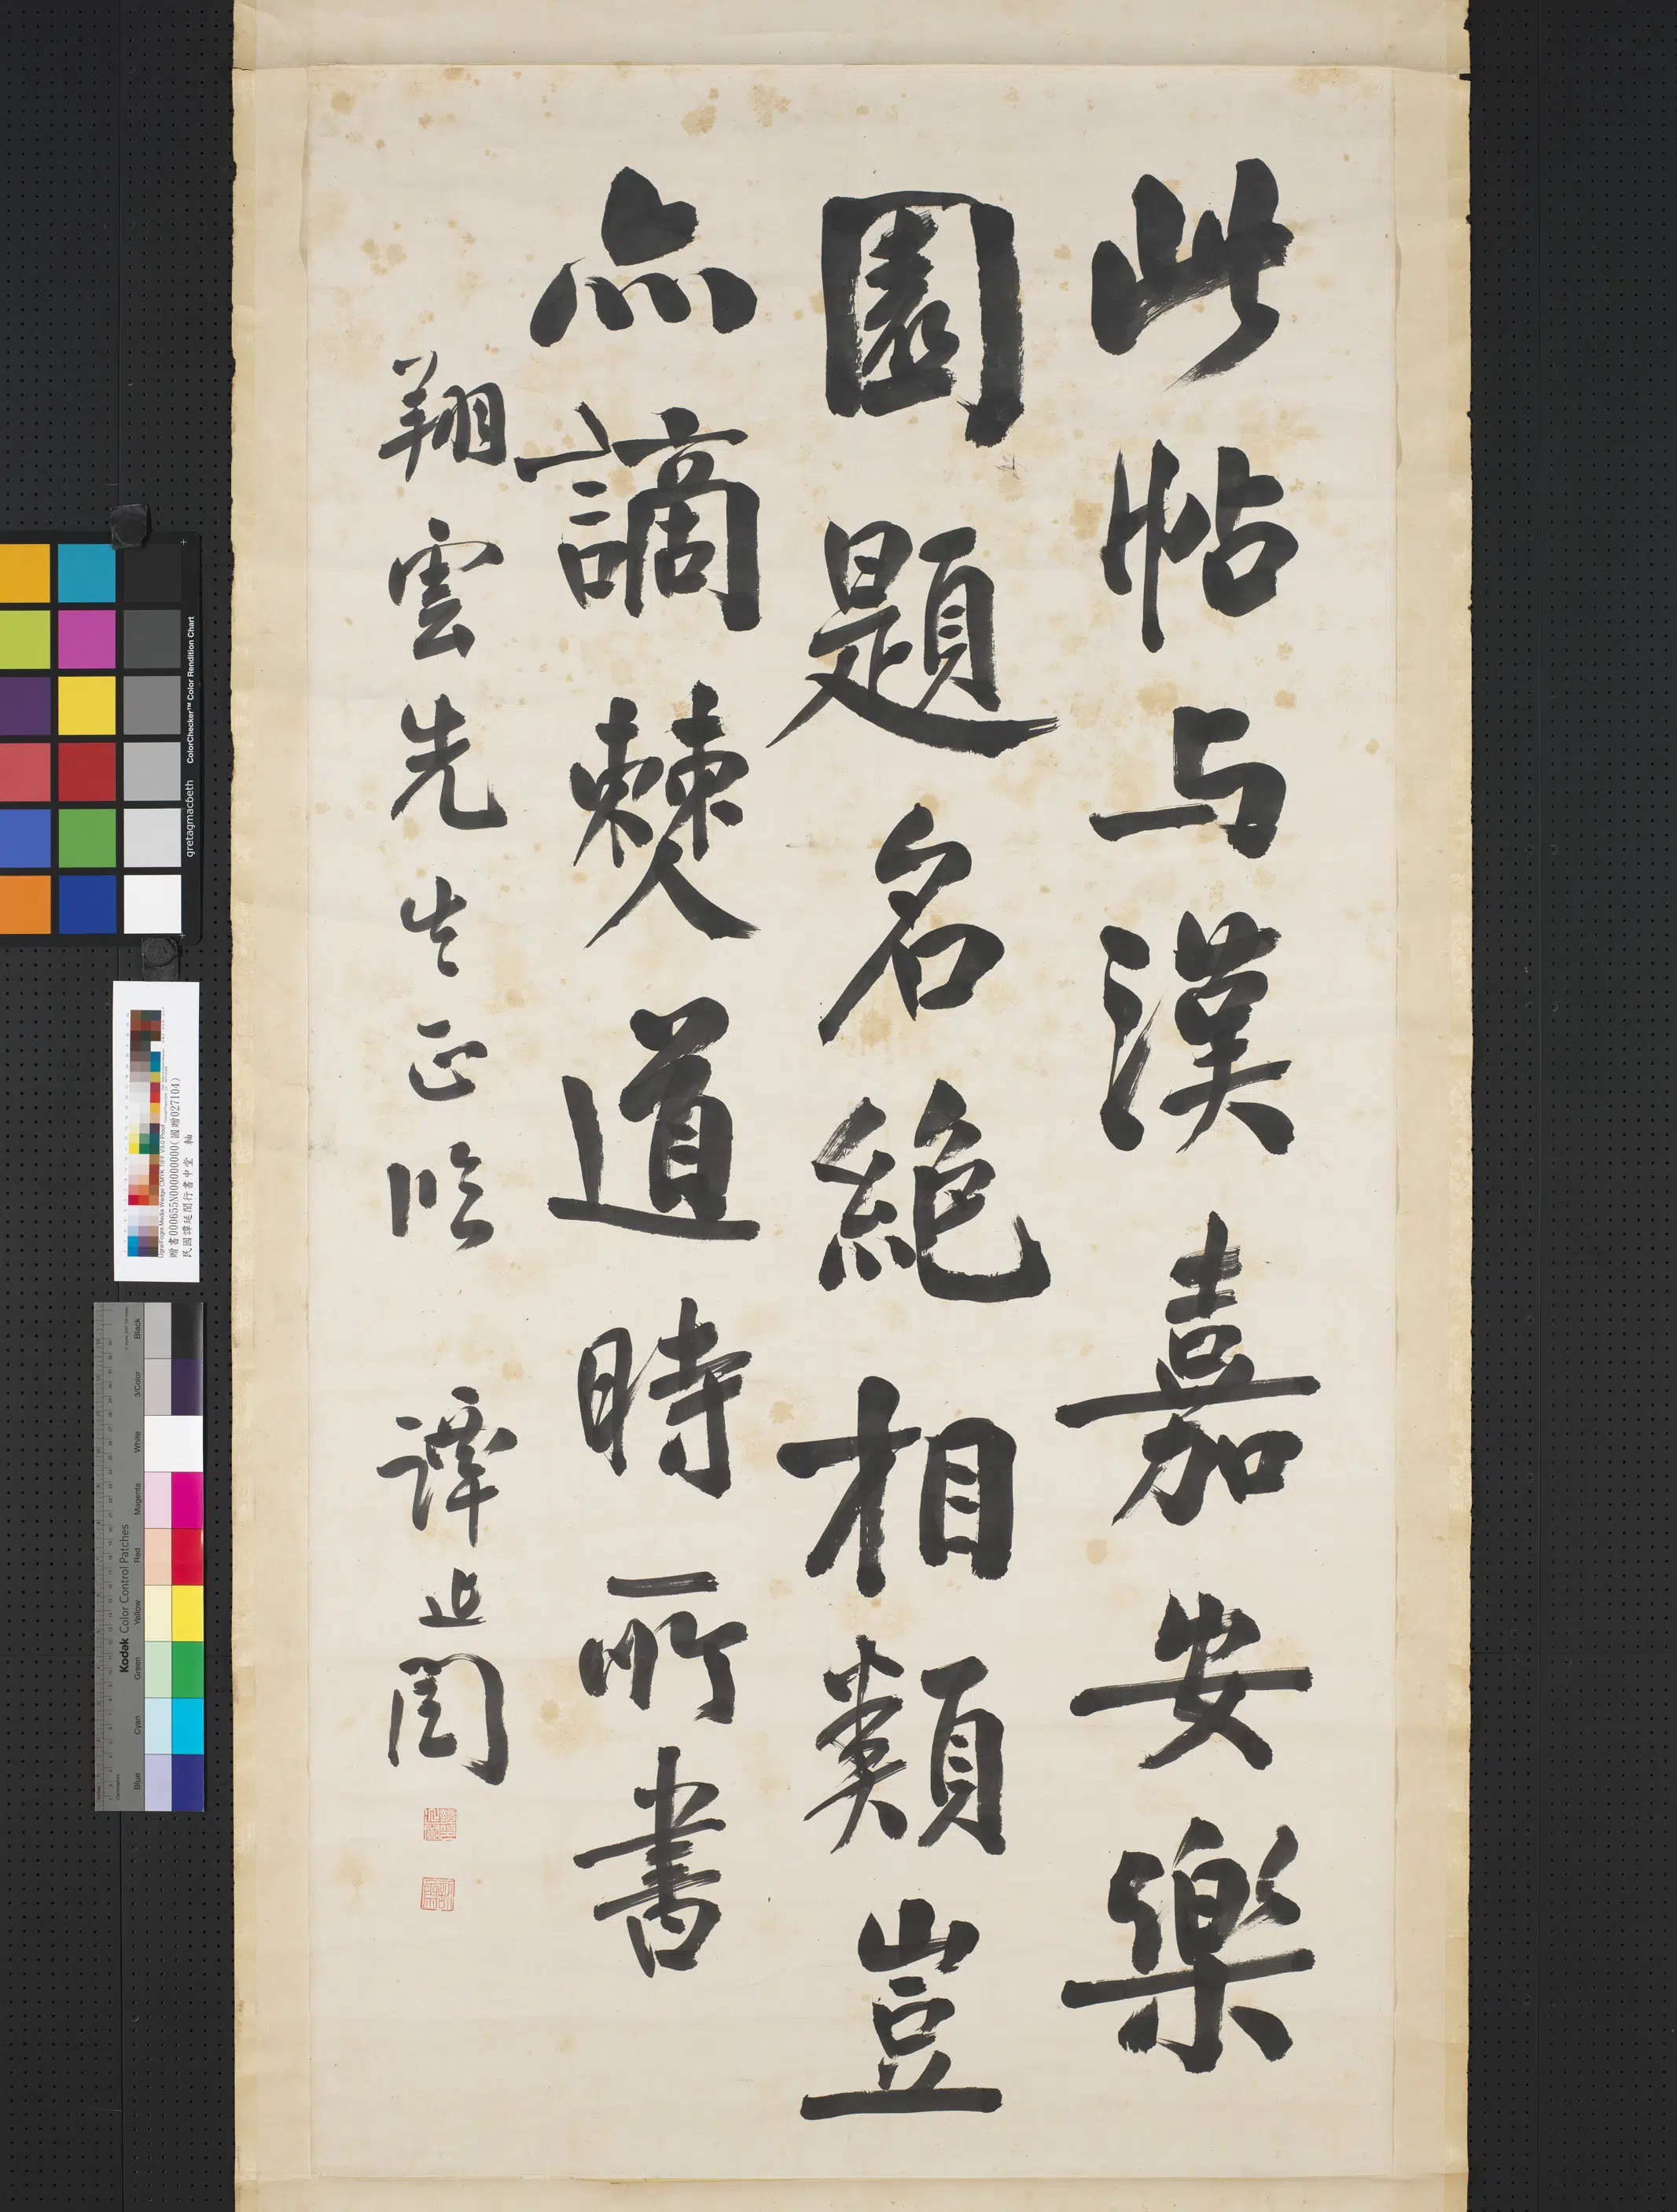 此帖与漢嘉安樂
園題名絶相類豈
亦謫僰道時所書
翔雲先生正臨 譚延闓
gretagmacbeth ColorChecker™ Color Rendition Chart
贈書000655N000000000(國贈027104)
民國譚延闓行書中堂 軸
Kodak Color Control Patches
Blue Cyan Green Yellow Red Magenta White 3/Color Black